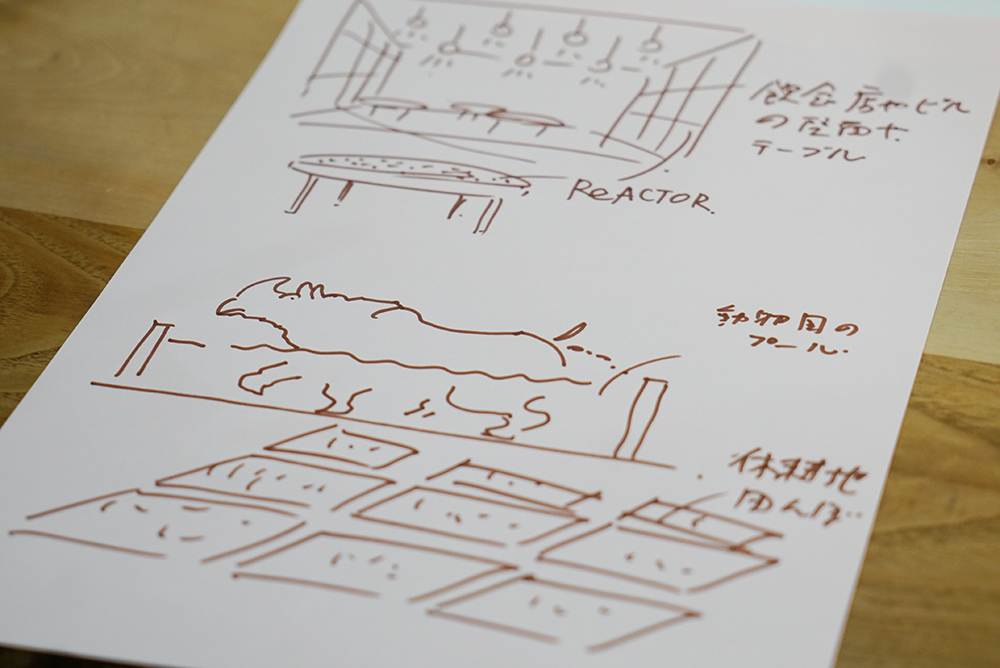 飲食店やビル
の座面や
テーブル
ReACTOR.
動物園の
プール.
田んぼ